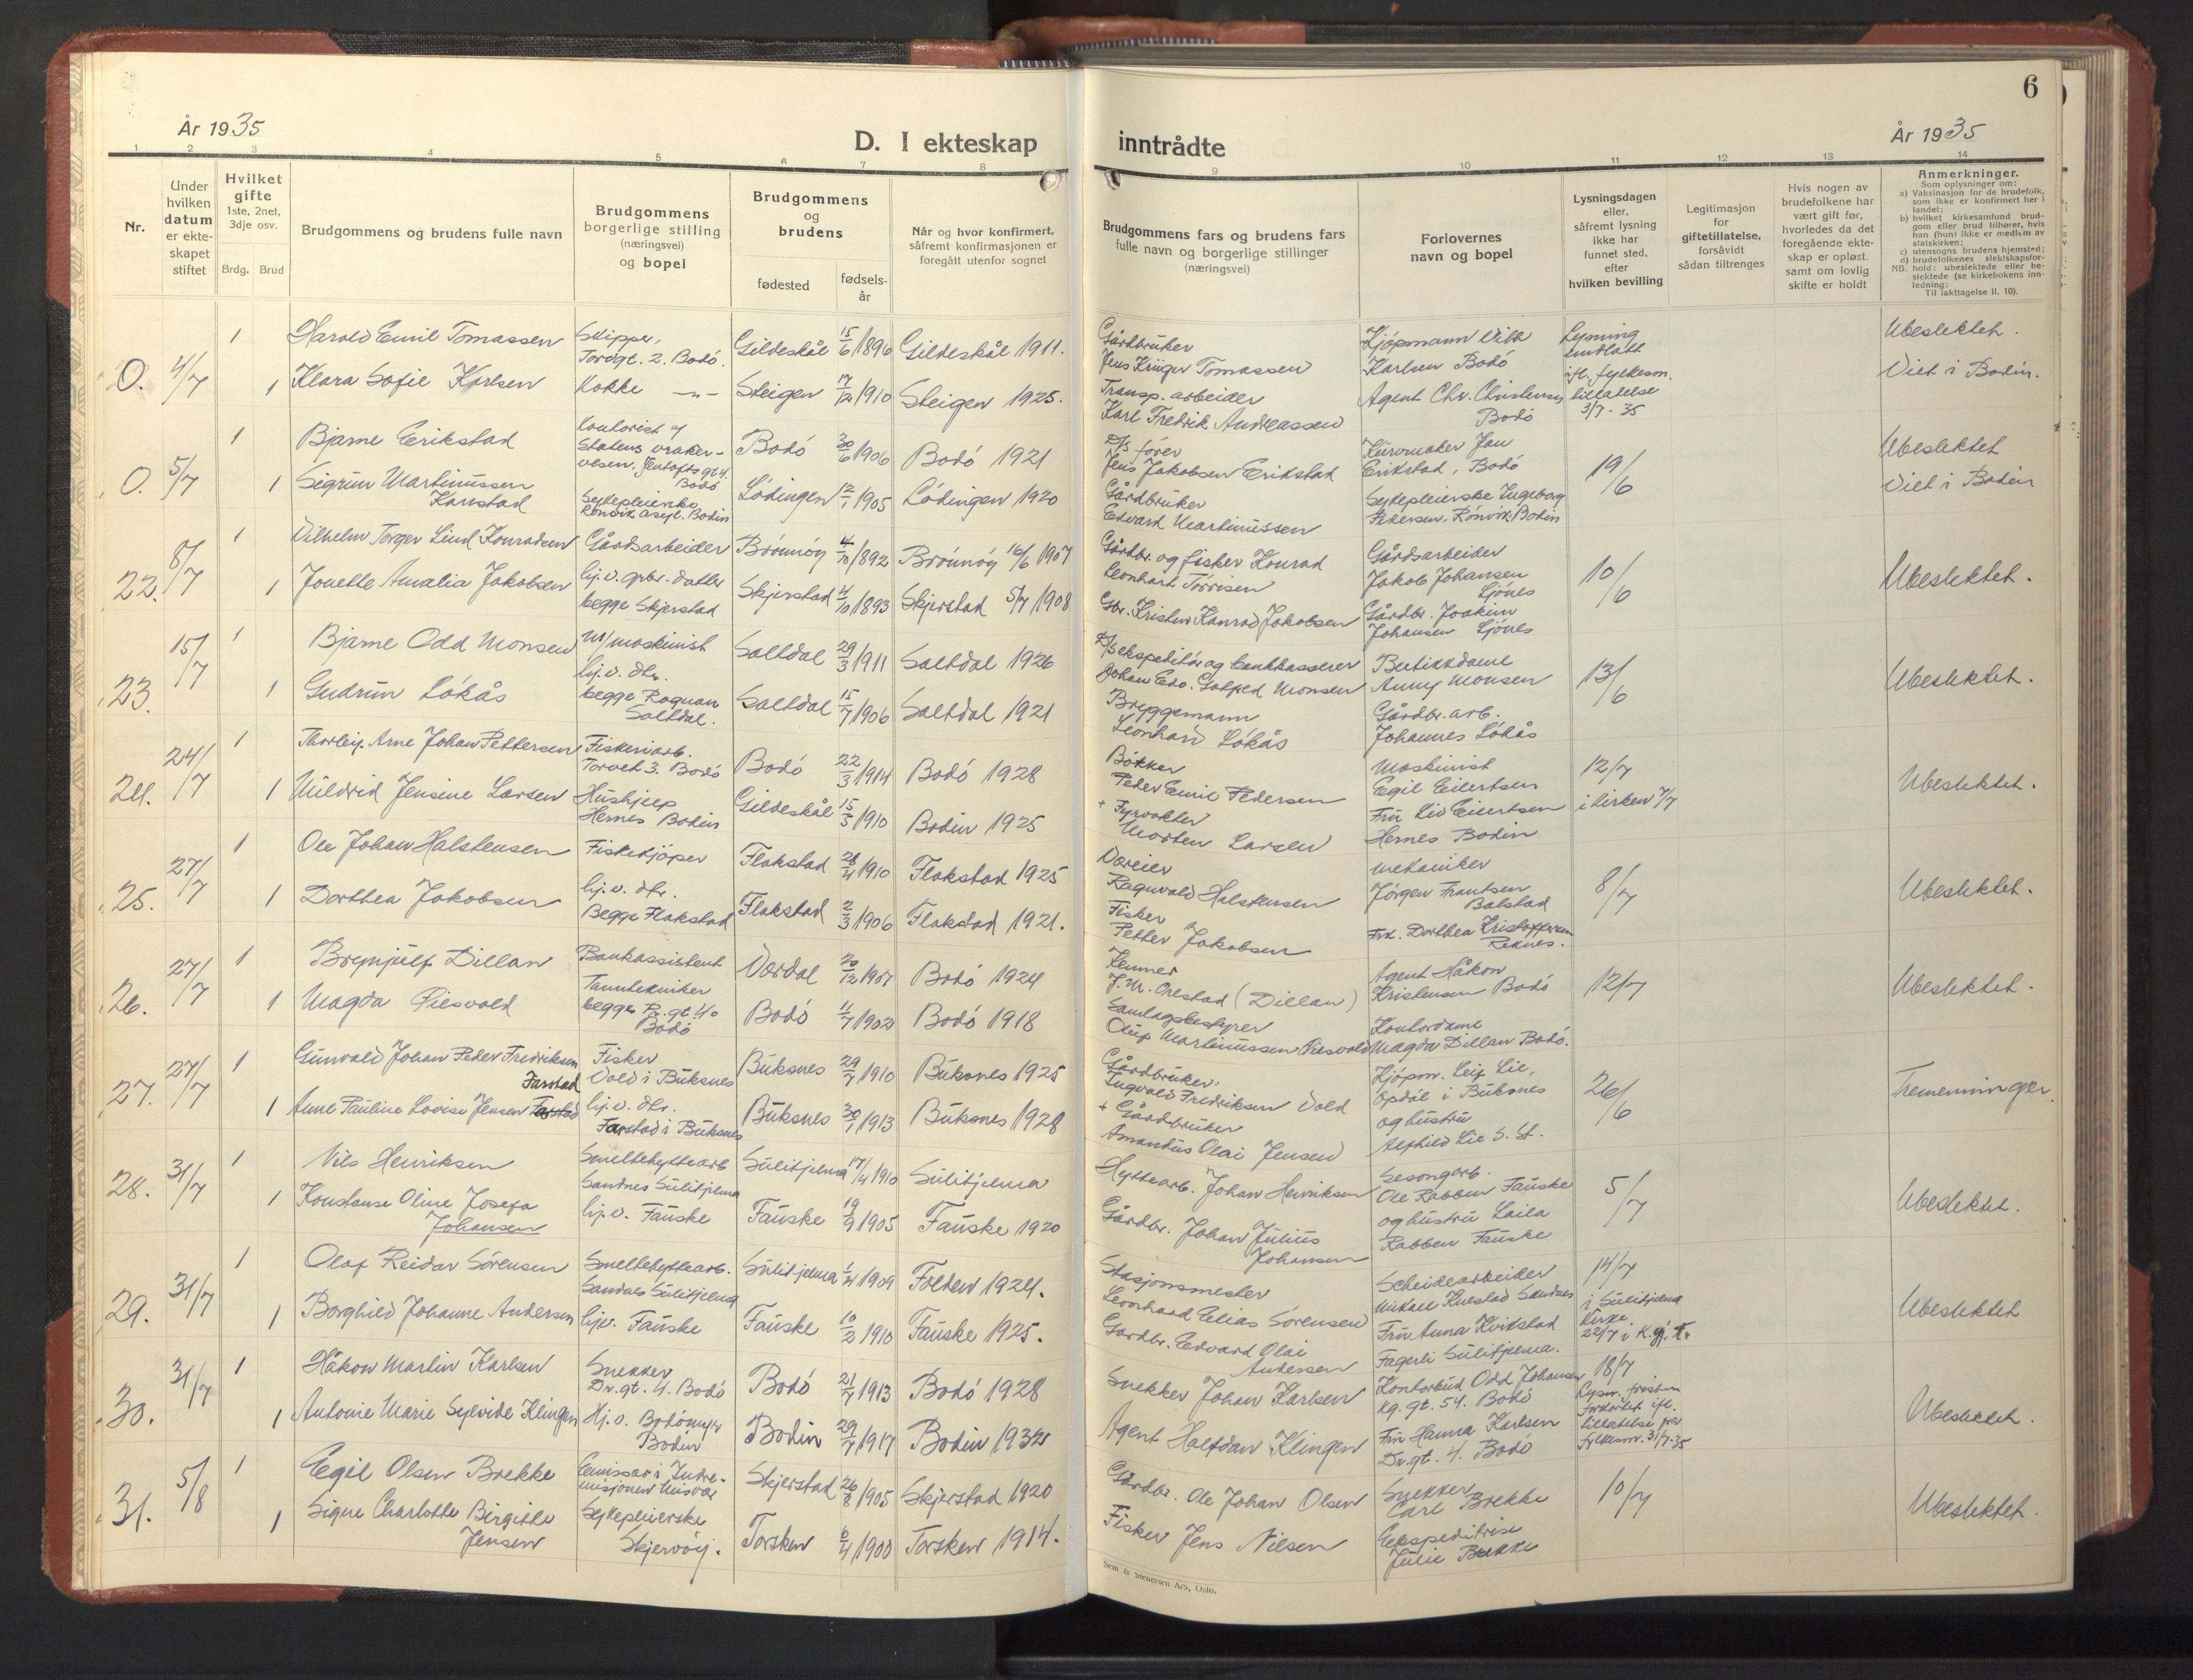 6
År 1935
D. I ekteskap inntrådte
År 1935
1 2 3 4 5 6 7 8 9 10 11 12 13 14
Nr.
Under hvilken datum er ekteskapet stiftet
Hvilket gifte 1ste, 2net, 3dje osv.
Brdg. Brud
Brudgommens og brudens fulle navn
Brudgommens borgerlige stilling (næringsvei) og bopel
Brudgommens og brudens
fødested
fødselsår
Når og hvor konfirmert, såfremt konfirmasjonen er foregått utenfor sognet
Brudgommens fars og brudens fars fulle navn og borgerlige stillinger (næringsvei)
Forlovernes navn og bopel
Lysningsdagen eller, såfremt lysning ikke har funnet sted, efter hvilken bevilling
Legitimasjon for giftetillatelse, forsåvidt sådan tiltrenges
Hvis nogen av brudefolkene har vært gift før, hvorledes da det foregående ekteskap er opløst. samt om lovlig skifte er holdt
Anmerkninger.
Som oplysninger om:
a) Vaksinasjon for de brudefolk, som ikke er konfirmert her i landet;
b) hvilket kirkesamfund brudgom eller brud tilhører, hvis han (hun) ikke er medlem av statskirken;
c) utensogns brudens hjemsted;
d) brudefolkenes slektskapsforhold: ubeslektede eller beslektede (se kirkebokens innledning:
NB.
Til iakttagelse II. 10).
0. 4/7 1 Harald Emil Tomassen Skipper, Tordgt. 2. Bodó. Gildeskål 15/6 1896 Gildeskål 1911. Gårdbruker Jens Krüger Tomassen Kjöpmann Karlsen Bodó Lysning undlatt ifl. fylkesm. tillatelse 3/7-35 Ubeslektet.
1 Klara Sofie Karlsen Kokke -"- Steigen 17/12 1910 Steigen 1925. Transp. arbeider Karl Fredrik Andreassen Agent Chr. Christensen Bodó Viet i Bodin.
0. 5/7 1 Bjarne Erikstad Kontorist v/ Statens vrakervesen. Jentoftsgt 4. Bodó Bodó 30/6 1906 Bodó 1921 D/s förer Jens Jakobsen Erikstad Jan Erikstad, Bodó 19/6 Ubeslektet
1 Sigrun Martinussen Karstad Sykepleierske Rönvik asyl. Bodin Lödingen 12/1 1905 Lödingen 1920 Gårdbruker Edvard Martinussen Sykepleierske Ingeborg Pedersen, Rönvik, Bodin Viet i Bodin
22. 8/7 1 Vilhelm Torger Lind Konradsen Gårdsarbeider Brönnöy 1892 Brönnöy 16/6 1907 Gårdbr. og fisker Konrad Leonhart Törrisen Gårdsarbeider Jakob Johansen Ljónes 10/6 Ubeslektet.
1 Jonette Amalia Jakobsen hj.v. grbr. datter begge Skjerstad Skjerstad 4/10 1893 Skjerstad 5/7 1908 Gbr. Kristen Konrad Jakobsen Gårdbr. Joakim Johansen Ljónes
23. 15/7 1 Bjarne Odd Monsen m/maskinist Saltdal 29/3 1911 Saltdal 1926 D/s ekspeditör og bankkasserer Johan Edv. Monsen Butikkdame Anny Monsen 13/6 Ubeslektet.
1 Gudrun Lókås hj.v. dtr. begge Rognan Saltdal. Saltdal 15/7 1906 Saltdal 1921 Bryggemann Leonhard Lókås Gårdbr. arb. Johannes Lókås
24. 24/7 1 Thorleif Arne Johan Pettersen Fiskeriarb. Torvet 3. Bodó Bodó 22/3 1914 Bodó 1928 Bökker Peder Emil Pedersen Maskinist Egil Eilertsen 12/7 i kirken 7/7 Ubeslektet.
1 Mildrid Jensine Larsen Hushjelp Hernes Bodin Gildeskål 15/5 1910 Bodin 1925 + Fyrvokter Morten Larsen Fru Liv Eilertsen Hernes Bodin
25. 27/7 1 Ole Johan Halstensen Fiskekjöper Flakstad 26/4 1910 Flakstad 1925 Væreier Ragnvald Halstensen mekaniker Jörgen Frantsen Balstad 8/7 Ubeslektet.
1 Dorthea Jakobsen hj.v. dtr. Begge Flakstad Flakstad 2/3 1906 Flakstad 1921. Fisker Petter Jakobsen Frk. Dorthea Kristoffersen Reknes.
26. 27/7 1 Brynjulf Dillan Bankassistent Værdal 20/12 1907 Bodó 1924 Lenner J. M. Orestad (Dillan) Agent Håkon Kristensen Bodó 12/7 Ubeslektet.
1 Magda Nilsvold Tanntekniker begge Pr.gt. 40 Bodó Bodó 1/7 1902 Bodó 1918 Samlagsbestyrer Oluf Martinussen Nilsvold Kontordame Magda Dillan Bodó.
27. 27/7 1 Gunvald Johan Peder Fredriksen Fisker Vold i Buksnes Buksnes 29/7 1910 Buksnes 1925 Gårdbruker. Ingvald Fredriksen Vold Kjöpm. Leif Lie, Opdól i Buksnes 26/6 Tremenninger.
1 Anne Pauline Lovise Jensen Farstad hj.v. dtr. Farstad i Buksnes Buksnes 30/1 1913 Buksnes 1928 + Gårdbruker Amandus Olai Jensen og hustru Alfhild Lie S. St.
28. 31/7 1 Nils Henriksen Smeltehyttearb Sandnes Sulitjelma Sulitjelma 17/4 1910 Sulitjelma Hyttearb. Johan Henriksen Sesongarb. Ole Rabben Fauske 5/7 Ubeslektet.
1 Konstanse Oline Josefa Johansen hj.v. Fauske Fauske 19/9 1905 Fauske 1920 Gårdbr. Johan Julius Johansen og hustru Laila Rabben Fauske
29. 31/7 1 Olaf Reidar Sörensen Smeltehyttearb. Sandnes Sulitjelma Sulitjelma 1909 Folden 1924. Stasjonsmester Leonhard Elias Sörensen Scheidearbeider Mikael Knestad Sandnes 14/7 i Sulitjelma kirke 22/7 i K.gj. F. Ubeslektet
1 Borghild Johanne Andersen hj.v. Fauske Fauske 10/2 1910 Fauske 1925. Gardbr. Edvard Olai Andersen Fru Anna Kvikstad Fagerli Sulitjelma.
30. 31/7 1 Håkon Martin Karlsen Snekker Dr.gt. 4. Bodó Bodó 21/7 1913 Bodó 1928 Snekker Johan Karlsen Kontorbud Odd Johansen Kg.gt. 54. Bodó 18/7 Lysn. fristen forkortet ifl. tillatelse fra fylkesm. 31/7-35 Ubeslektet.
1 Antonie Marie Sylvide Klingen Hj.v. Bodómyr Bodin Bodin 29/7 1917 Bodin 1932 Agent Halfdan Klingen Fru Hanna Karlsen Dr.gt. 4. Bodó
31. 5/8 1 Egil Olsen Brekke Emissær i Indremisjonen Misvær Skjerstad 26/8 1905 Skjerstad 1920 Gårdbr. Ole Johan Olsen Snekker Carl Brekke 10/7 Ubeslektet.
1 Signe Charlotte Birgitte Jensen Sykepleierske Skjervöy. Torsken 6/4 1900 Torsken 1914. Fisker Jens Nilsen Ekspeditrise Julie Brekke
Sem & Stenersen A/S, Oslo.